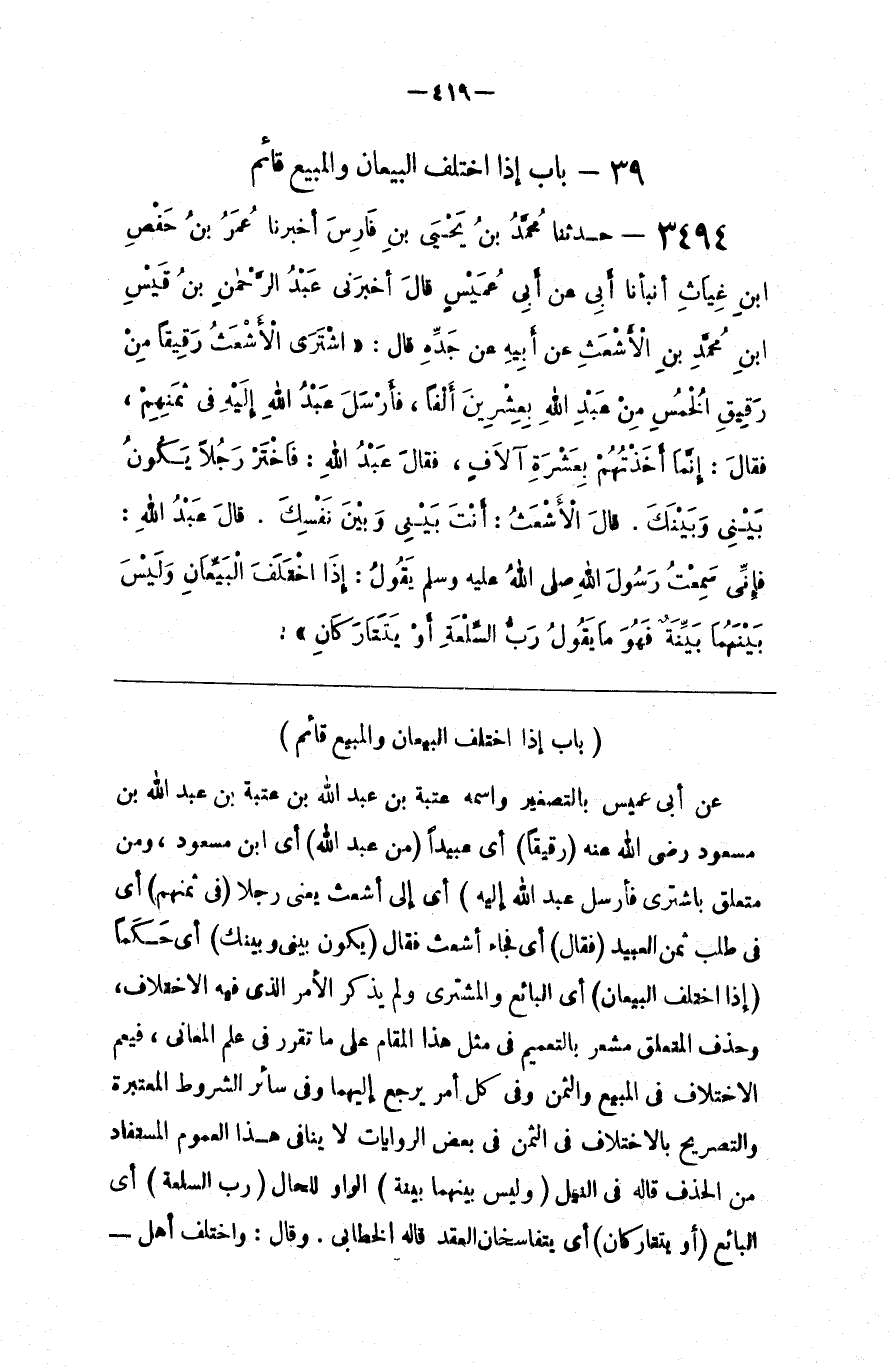 — ٤١٩ —
٣٩ — باب إذا اختلف البيعان والمبيع قائم
٣٤٩٤ — حـدثنا مُحَمَّدُ بنُ يَحْيَى بنِ فَارِسَ أخبرنا عُمَرُ بنُ حَفْصِ
ابنِ غِيَاثٍ أنبأنا أَبِى عن أَبِى عُمَيْسٍ قالَ أخبرَنى عَبْدُ الرَّحْمٰنِ بنُ قَيْسِ
ابنِ مُحمَّدِ بنِ الْأَشْعَثِ عن أَبِيهِ عن جَدِّهِ قال : « اشْتَرَى الْأَشْعَثُ رَقِيقاً مِنْ
رَقِيقِ الْخُمُسِ مِنْ عَبْدِ اللهِ بِعِشْرِينَ أَلْفاً ، فَأَرْسَلَ عَبْدُ اللهِ إِلَيْهِ فى ثَمَنِهِمْ ،
فقالَ : إِنَّمَا أَخَذْتُهُمْ بِعَشْرَةِ آلاَفٍ ، فقالَ عَبْدُ اللهِ : فَاخْتَرْ رَجُلاً يَـكُونُ
بَيْـنِى وَبَيْنَكَ . قالَ الْأَشْعَثُ : أَنْتَ بَيْـنِى وَبَيْنَ نَفْسِكَ . قالَ عَبْدُ اللهِ :
فإِنِّى سَمِعْتُ رَسُولَ اللهِ صلى اللهُ عليه وسلم يَقُولُ : إِذَا اخْتَلَفَ الْبَيِّعَانِ وَلَيْسَ
بَيْنَهُمَا بَيِّنَةٌ فَهُوَ مَا يَقُولُ رَبُّ السِّلْعَةِ أَوْ يَتَتَارَكَانِ » :
( باب إذا اختلف البيعان والمبيع قائم )
عن أبى عميس بالتصغير واسمه عتبة بن عبد الله بن عتبة بن عبد الله بن
مسعود رضى الله عنه (رقيقاً) أى عبيداً (من عبد الله) أى ابن مسعود ، ومن
متعلق باشترى فأرسل عبد الله إليه ) أى إلى أشعث يعنى رجلا (فى ثمنهم) أى
فى طلب ثمن العبيد (فقال) أى فجاء أشعث فقال (يكون بينى وبينك) أى حَـكَماً
(إذا اختلف البيعان) أى البائع والمشترى ولم يذكر الأمر الذى فيه الاختلاف ،
وحذف المتعلق مشعر بالتعميم فى مثل هذا المقام على ما تقرر فى علم المعانى ، فيعم
الاختلاف فى المبيع والثمن وفى كل أمر يرجع إليهما وفى سائر الشروط المعتبرة
والتصريح بالاختلاف فى الثمن فى بعض الروايات لا ينافى هـذا العموم المستفاد
من الحذف قاله فى النيل ( وليس بينهما بينة ) الواو للحال ( رب السلعة ) أى
البائع (أو يتتاركان) أى يتفاسخان العقد قاله الخطابى . وقال : واختلف أهل —